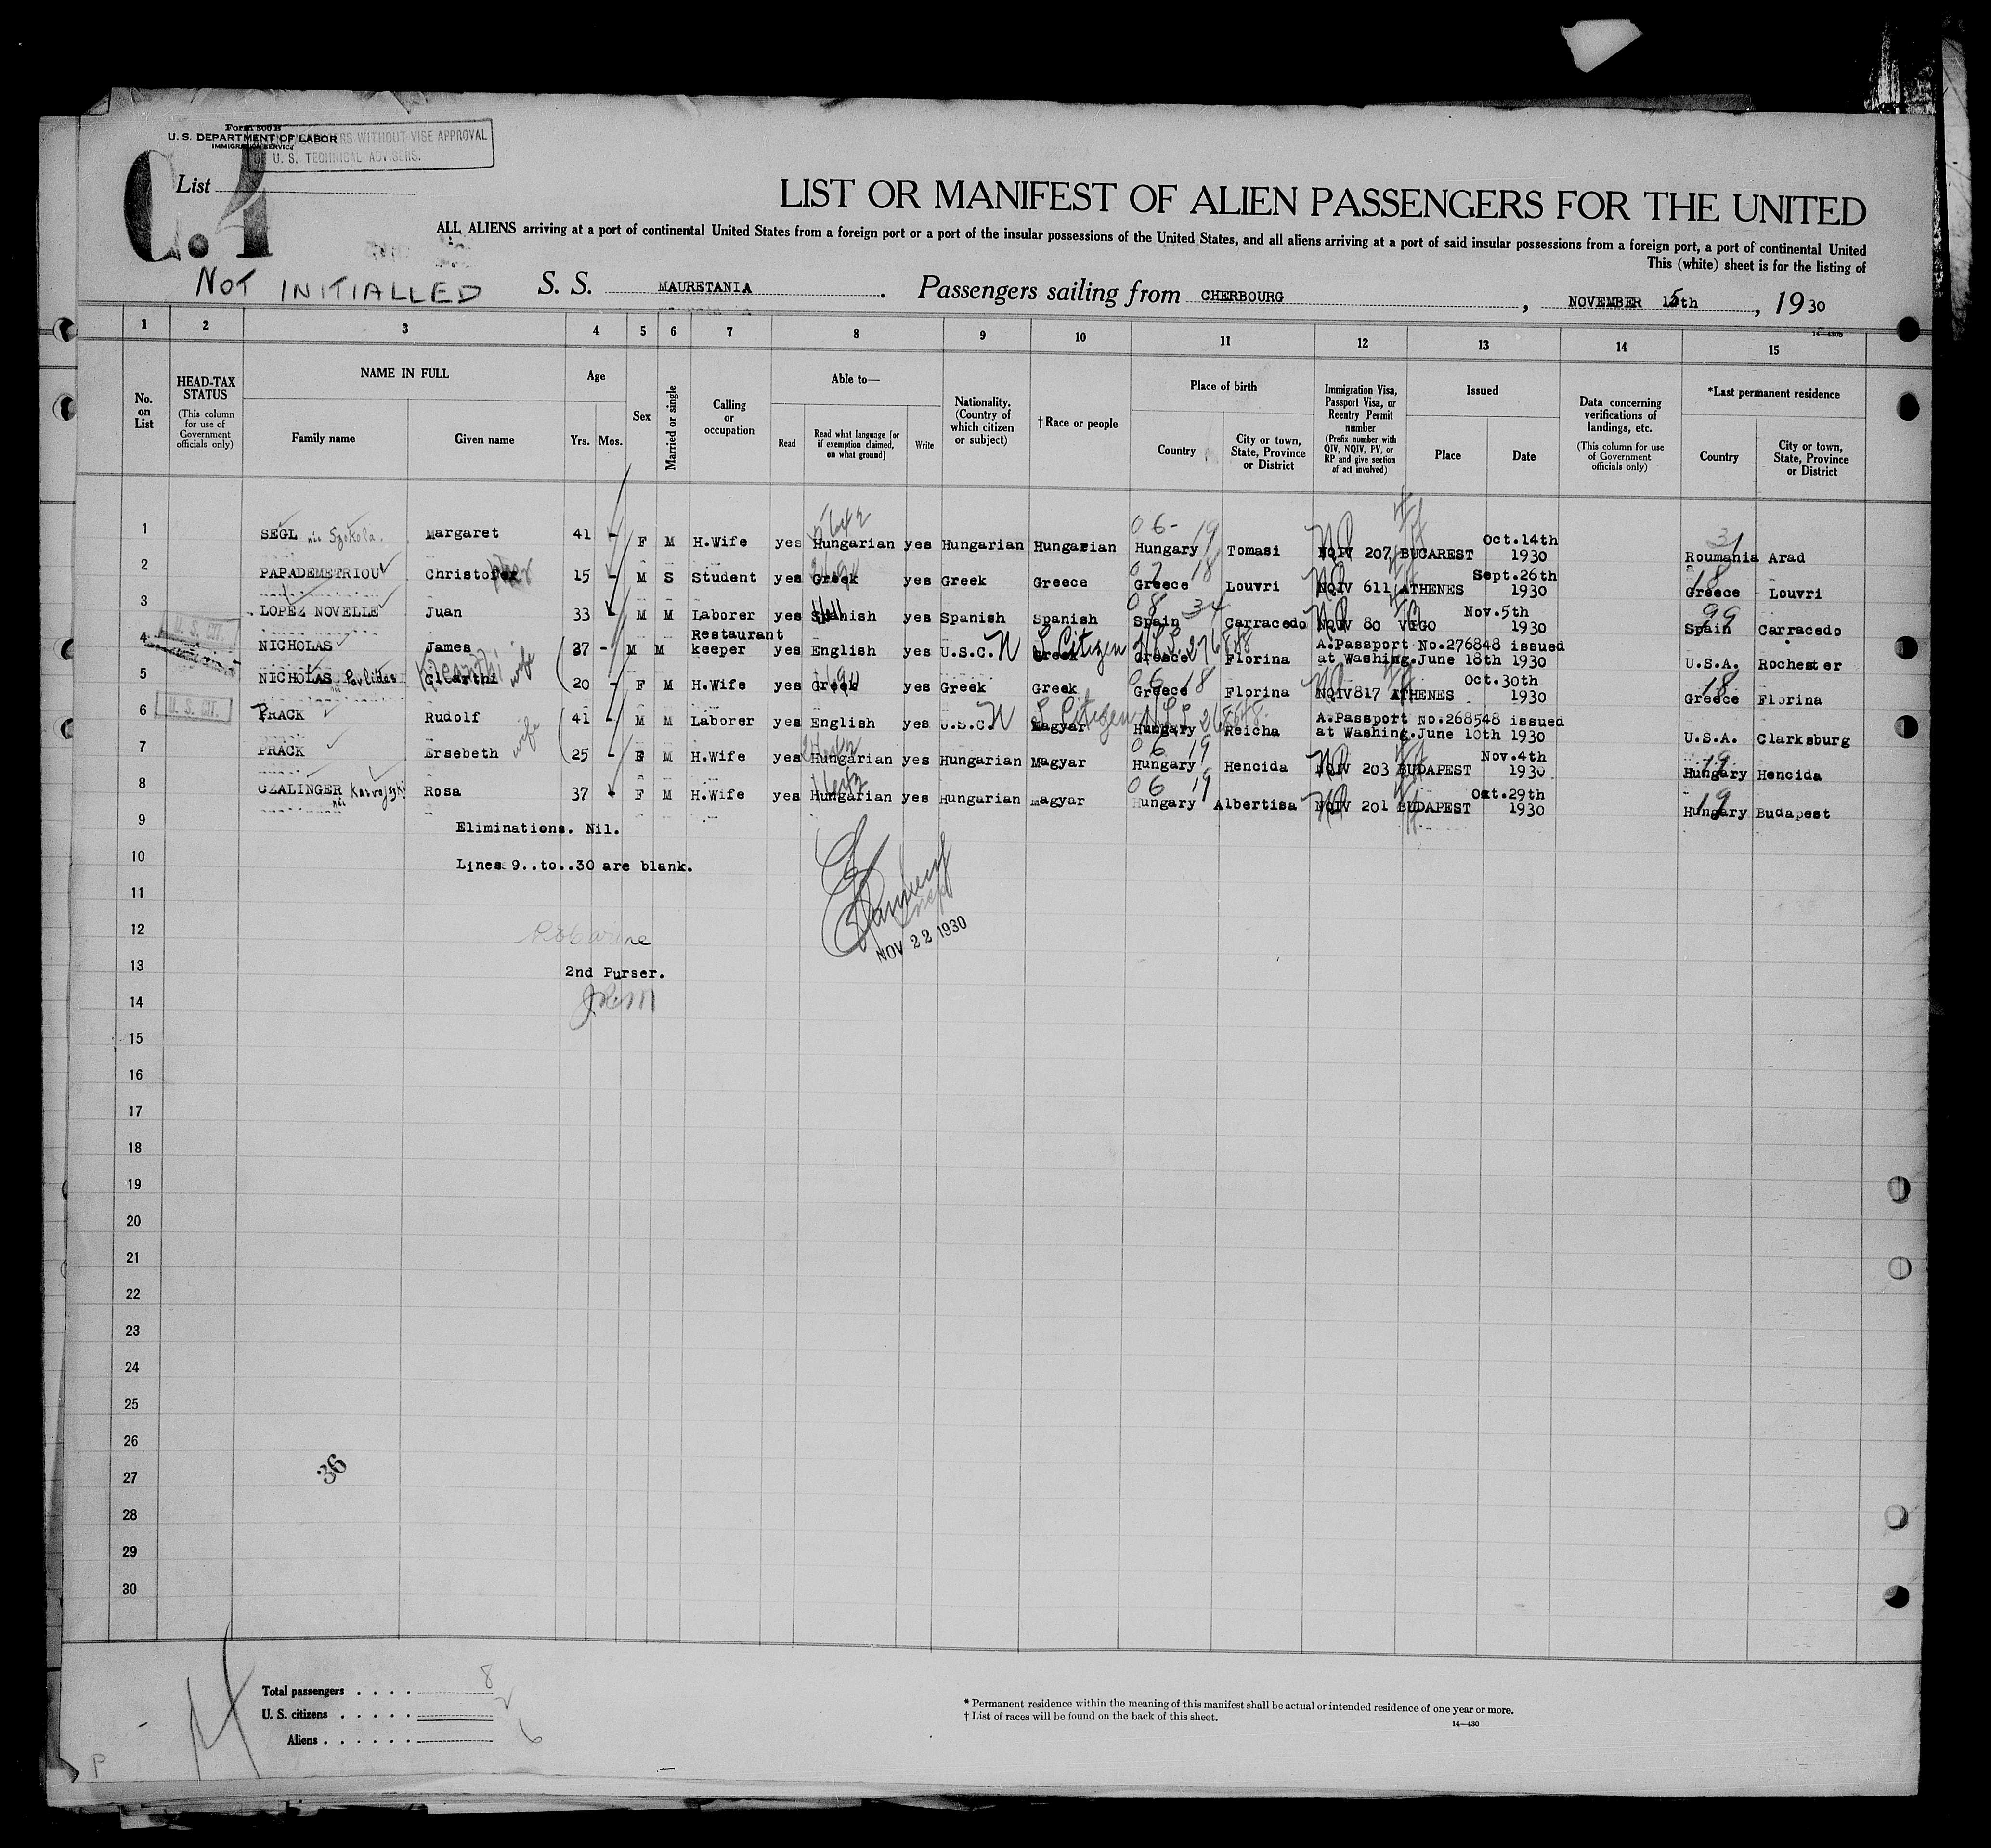 Form 500 B
U. S. DEPARTMENT OF LABOR
IMMIGRATION SERVICE
RS WITHOUT VISE APPROVAL
OF U. S. TECHNICAL ADVISERS.
List
C.4
LIST OR MANIFEST OF ALIEN PASSENGERS FOR THE UNITED
ALL ALIENS arriving at a port of continental United States from a foreign port or a port of the insular possessions of the United States, and all aliens arriving at a port of said insular possessions from a foreign port, a port of continental United
This (white) sheet is for the listing of
NOT INITIALLED
S. S. MAURETANIA. Passengers sailing from CHERBOURG, NOVEMBER 15th, 1930
14—430B
1 2 3 4 5 6 7 8 9 10 11 12 13 14 15
No. on List
HEAD-TAX STATUS (This column for use of Government officials only)
NAME IN FULL
Family name Given name
Age
Yrs. Mos.
Sex
Married or single
Calling or occupation
Able to—
Read Read what language [or if exemption claimed, on what ground] Write
Nationality. (Country of which citizen or subject)
†Race or people
Place of birth
Country City or town, State, Province or District
Immigration Visa, Passport Visa, or Reentry Permit number (Prefix number with QIV, NQIV, PV, or RP and give section of act involved)
Issued
Place Date
Data concerning verifications of landings, etc. (This column for use of Government officials only)
*Last permanent residence
Country City or town, State, Province or District
1 SEGL née Szokola. Margaret 41 - F M H.Wife yes Hungarian yes Hungarian Hungarian Hungary Tomasi NQIV 207 BUCAREST Oct.14th 1930 Roumania Arad
2 PAPADEMETRIOU Christofer 15 - M S Student yes Greek yes Greek Greece Greece Louvri NQIV 611 ATHENES Sept.26th 1930 Greece Louvri
3 LOPEZ NOVELLE Juan 33 M M Laborer yes Spanish yes Spanish Spanish Spain Carracedo NQIV 80 VIGO Nov.5th 1930 Spain Carracedo
U. S. CIT.
4 NICHOLAS James 37 - M M Restaurant keeper yes English yes U.S.C. N Greek Greece Florina A.Passport No.276848 issued at Washing.June 18th 1930 U.S.A. Rochester
5 NICHOLAS née Pavlidas Cleanthi wife 20 - F M H.Wife yes Greek yes Greek Greek Greece Florina NQIV 817 ATHENES Oct.30th 1930 Greece Florina
U. S. CIT.
6 PRACK Rudolf 41 - M M Laborer yes English yes U.S.C. N Magyar Hungary Reicha A.Passport No.268548 issued at Washing.June 10th 1930 U.S.A. Clarksburg
7 PRACK Ersebeth wife 25 - F M H.Wife yes Hungarian yes Hungarian Magyar Hungary Hencida NQIV 203 BUDAPEST Nov.4th 1930 Hungary Hencida
8 CZALINGER née Rosa 37 F M H.Wife yes Hungarian yes Hungarian Magyar Hungary Albertisa NQIV 201 BUDAPEST Oct.29th 1930 Hungary Budapest
9 Eliminations. Nil.
10 Lines 9..to..30 are blank.
11
12
NOV 22 1930
13 2nd Purser.
14
15
16
17
18
19
20
21
22
23
24
25
26
27
36
28
29
30
Total passengers . . . . 8
U. S. citizens . . . . . 2
Aliens . . . . . . 6
* Permanent residence within the meaning of this manifest shall be actual or intended residence of one year or more.
† List of races will be found on the back of this sheet.
14—430
P